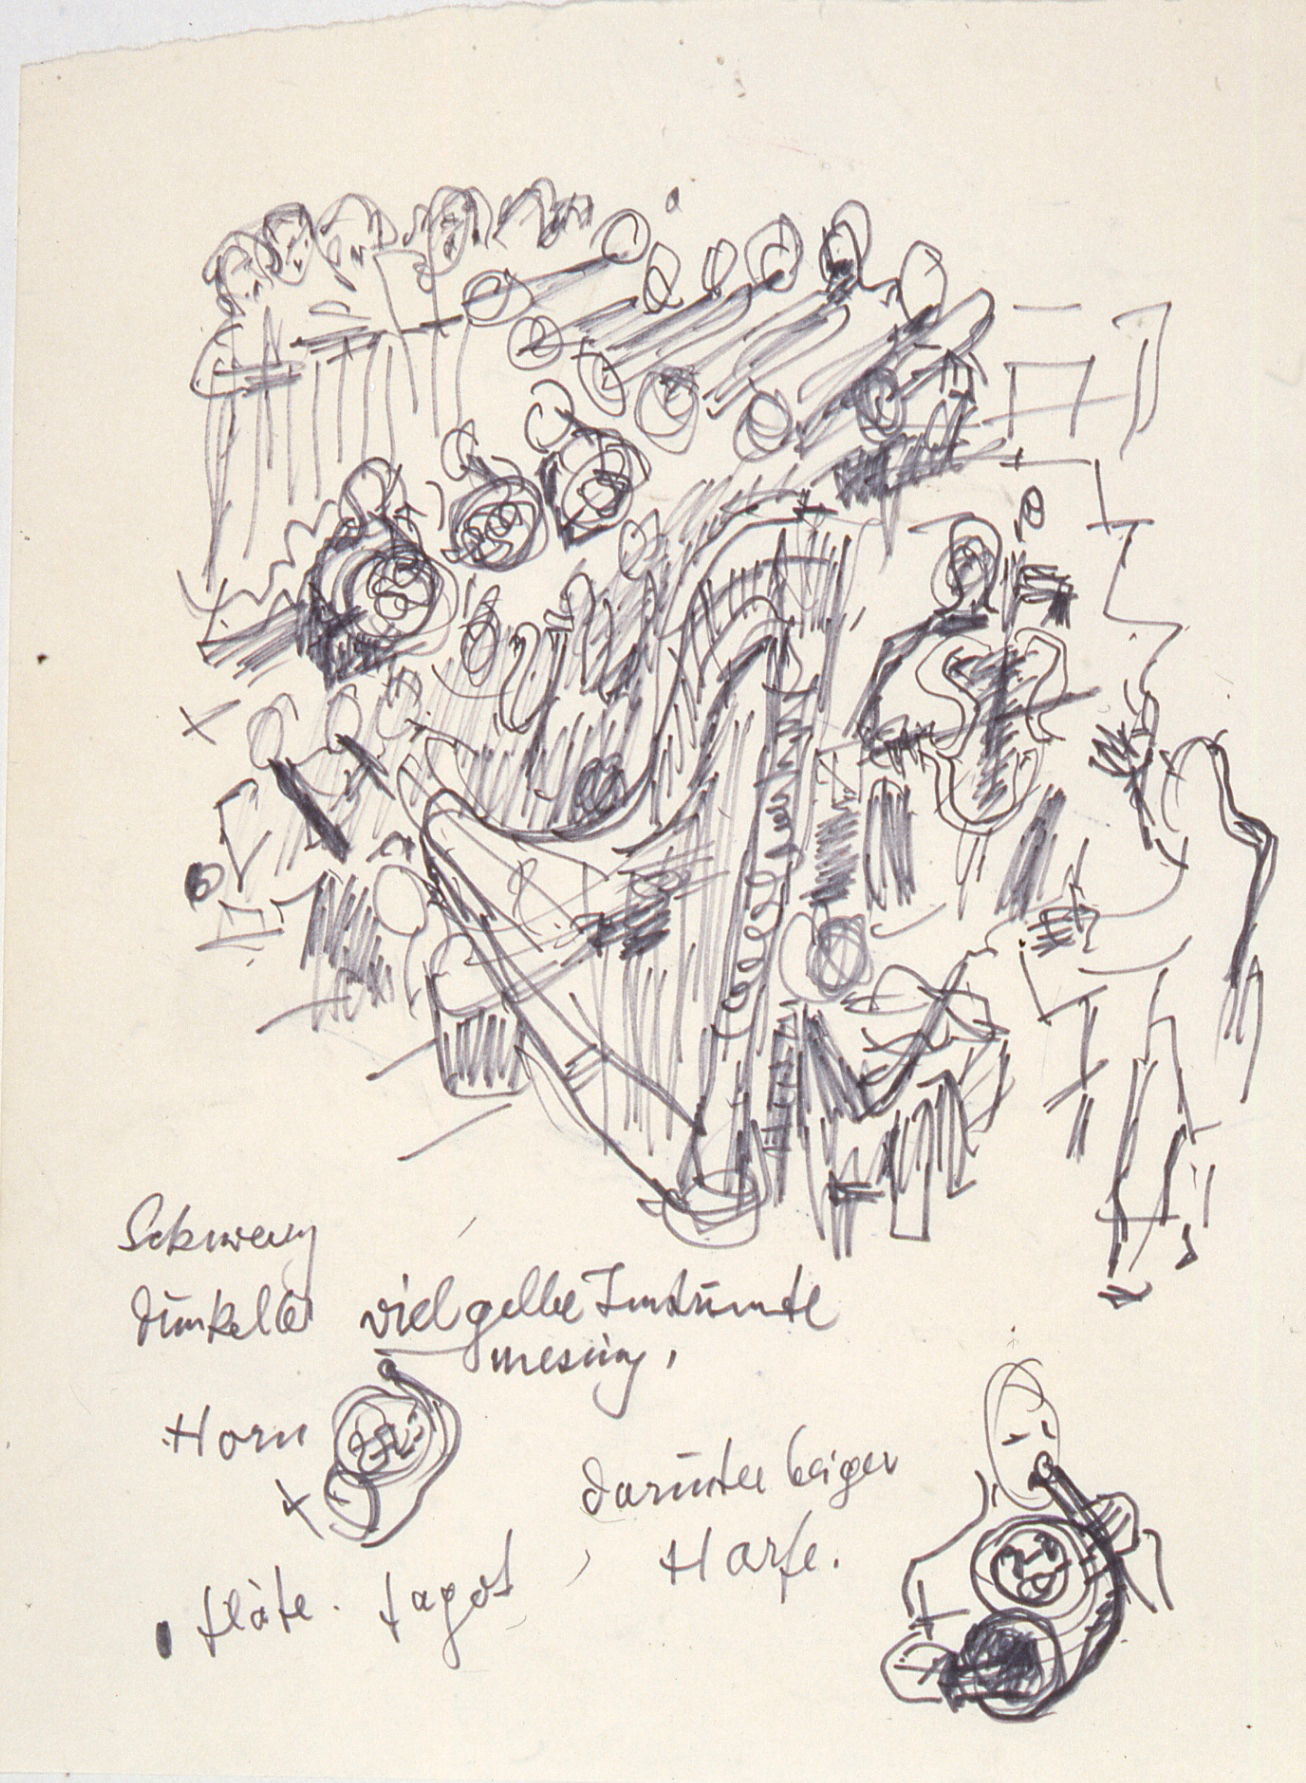 dunkel
viel gelbe Instrumte
mesing,
Horn
darunter beiger
Harfe.
fläte. fagot